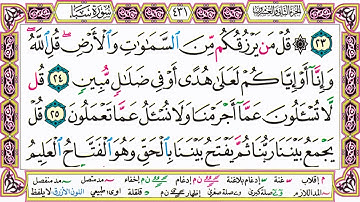 الجزء الثاني والعشرون ٤٣١ سورة سبأ
٢٣ قُلْ مَن يَرْزُقُكُم مِّنَ ٱلسَّمَٰوَٰتِ وَٱلْأَرْضِ قُلِ ٱللَّهُ
وَإِنَّآ أَوْ إِيَّاكُمْ لَعَلَىٰ هُدًى أَوْ فِى ضَلَٰلٍ مُّبِينٍ ٢٤ قُل
لَّا تُسْـَٔلُونَ عَمَّآ أَجْرَمْنَا وَلَا نُسْـَٔلُ عَمَّا تَعْمَلُونَ ٢٥ قُلْ
يَجْمَعُ بَيْنَنَا رَبُّنَا ثُمَّ يَفْتَحُ بَيْنَنَا بِٱلْحَقِّ وَهُوَ ٱلْفَتَّاحُ ٱلْعَلِيمُ